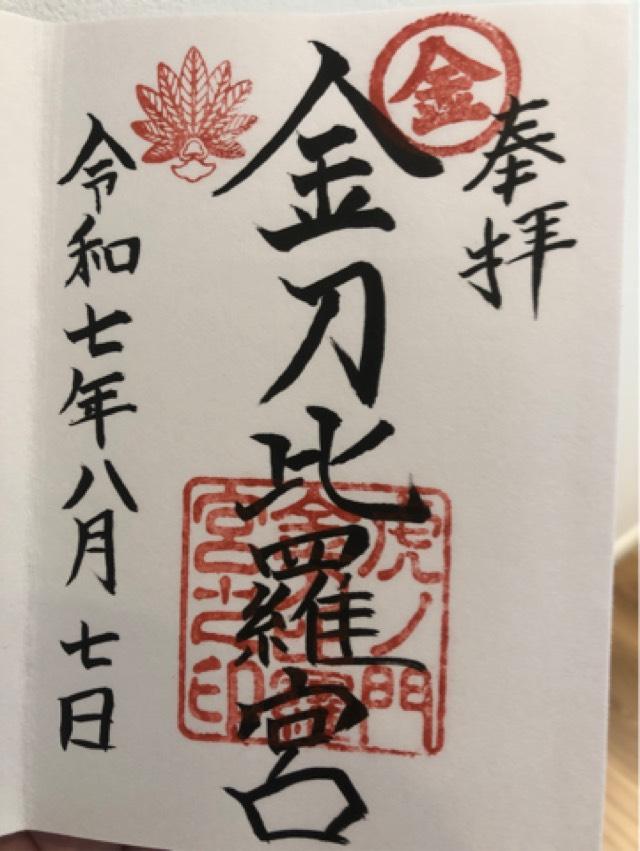 奉拝
金
金刀比羅宮
虎ノ門
宮之印
令和七年八月七日